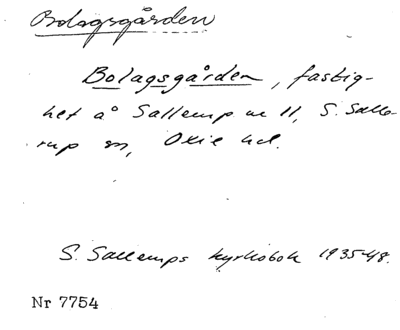 Bolagsgården
Bolagsgården, fastig-
het å Sallerup nr 11, S. Salle-
rup sn, Oxie hd.
S. Sallerups kyrkobok 1935-48.
Nr 7754